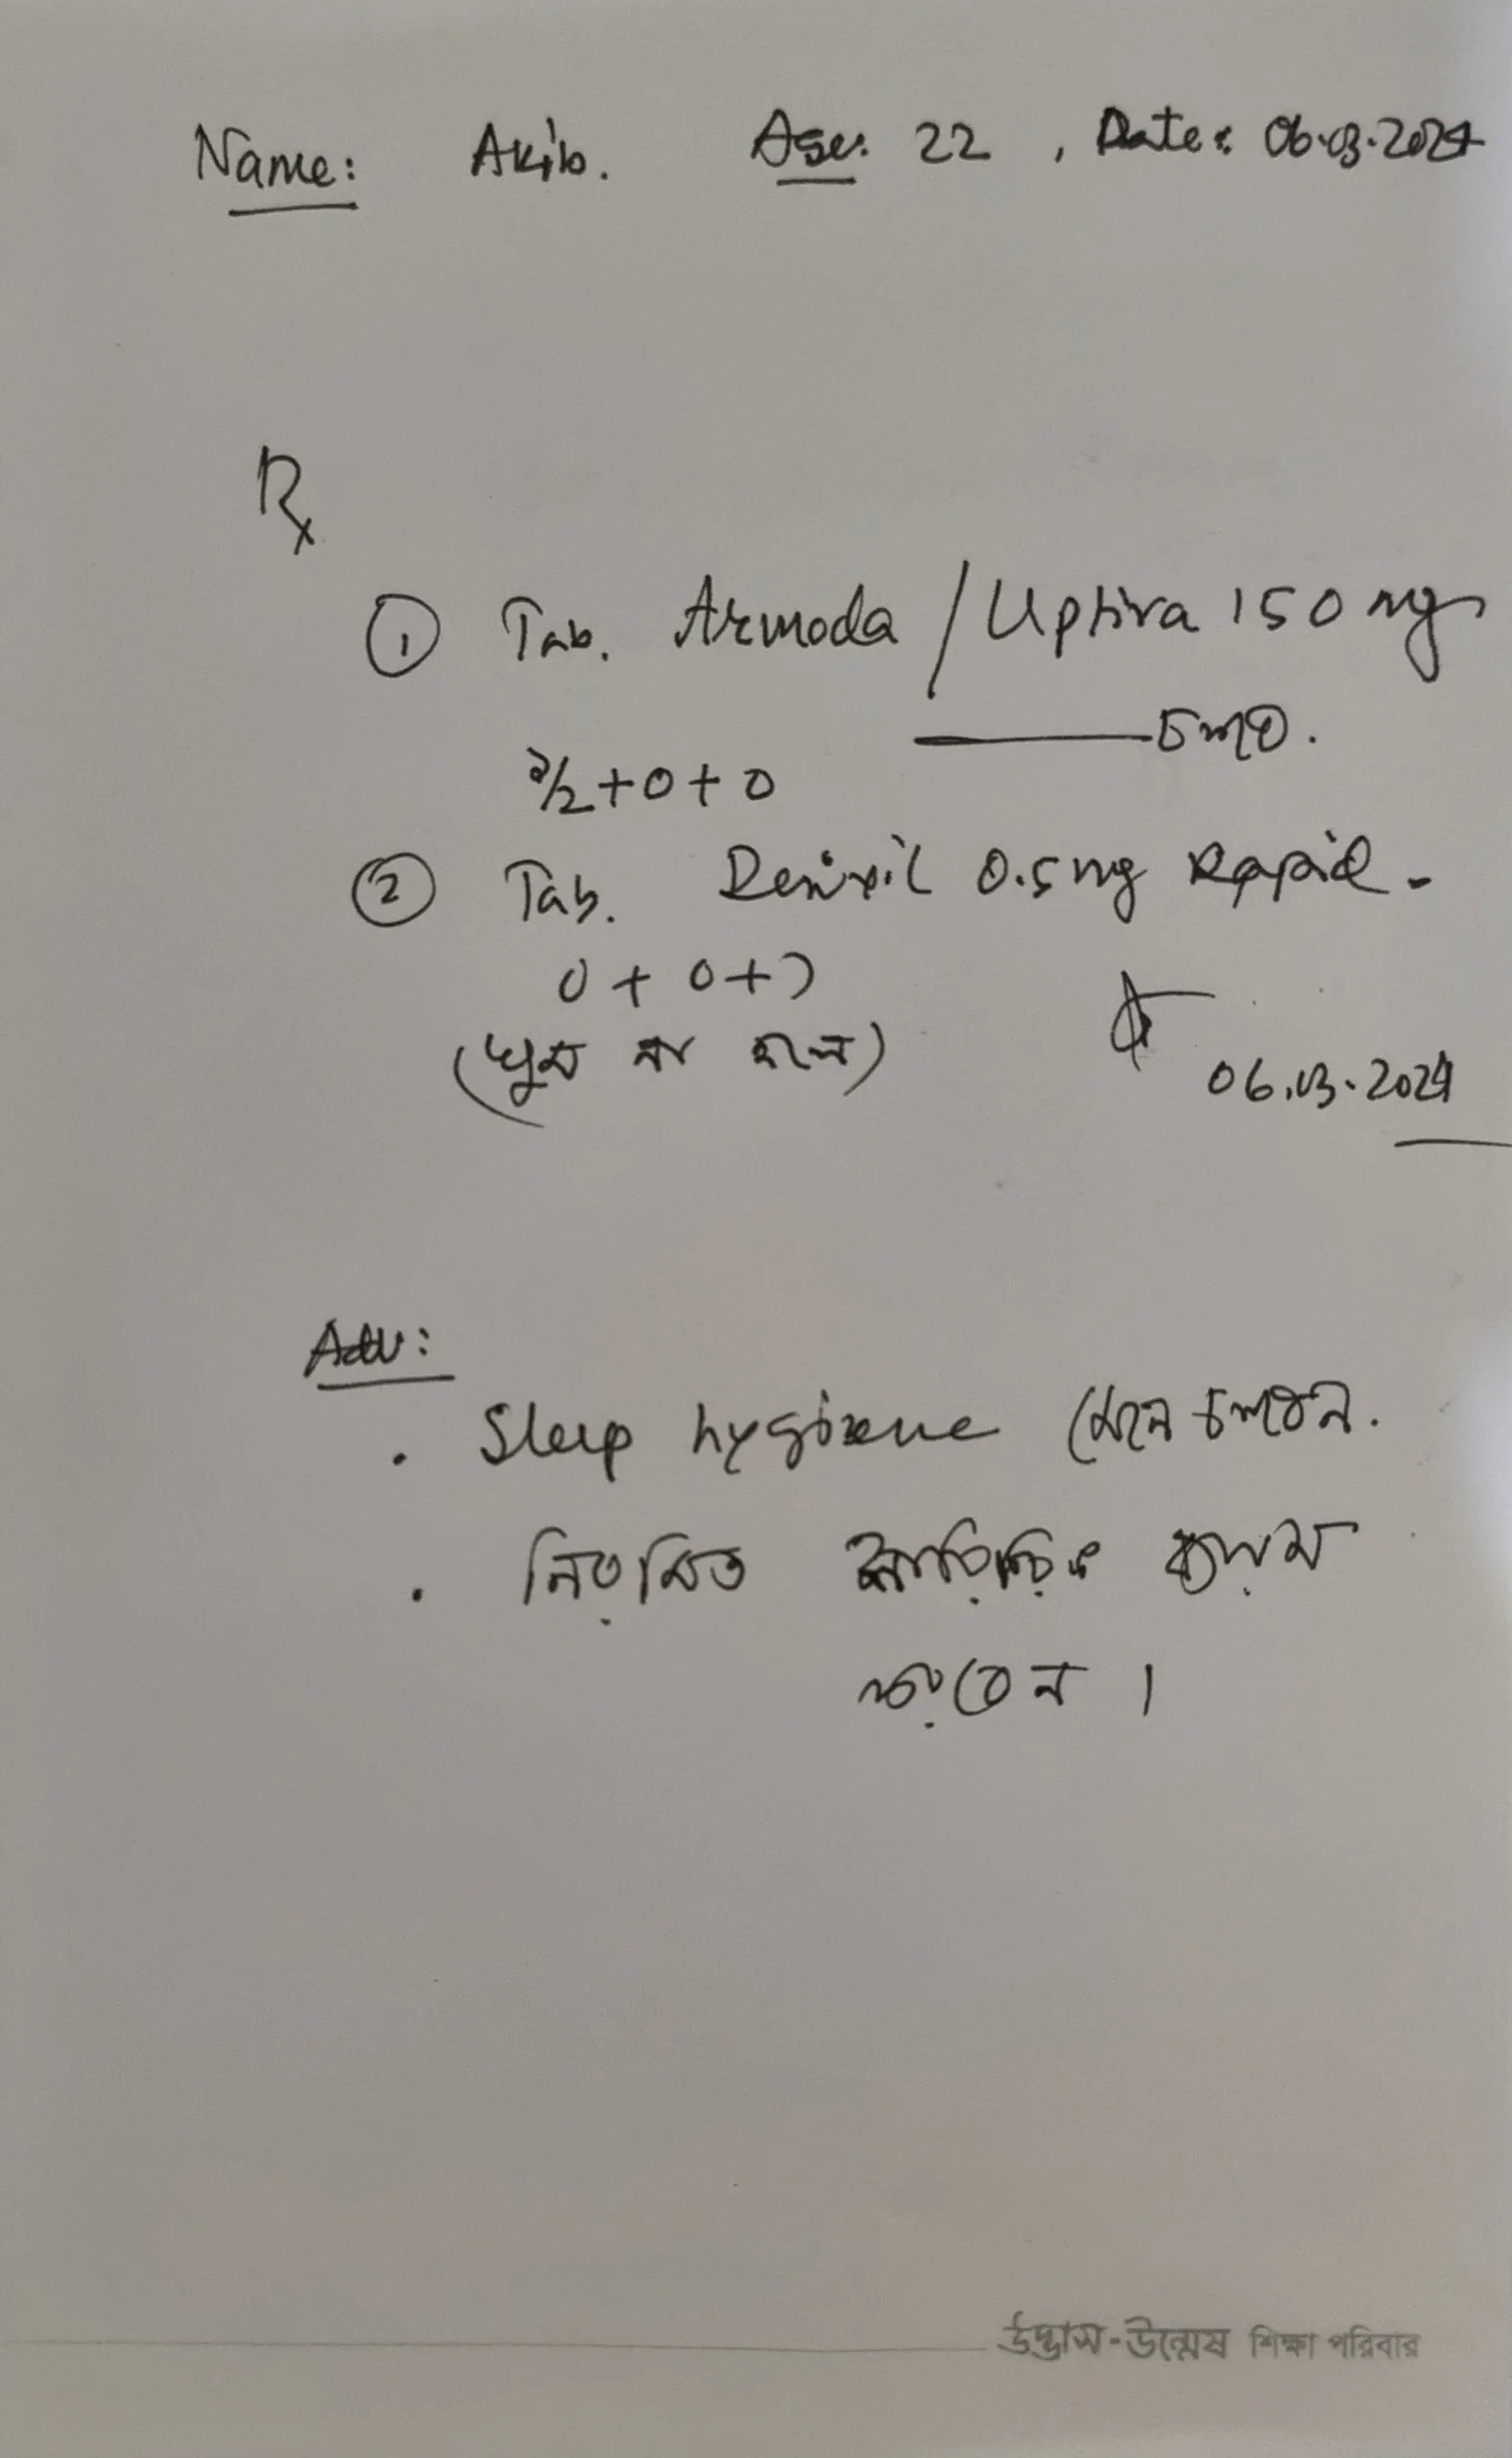 Name: Akib. Age: 22 , Date: 06.03.2024
Rx
① Tab. Armoda / Uptiva 150 mg
চলবে.
১/২+0+0
② Tab. Denixil 0.5mg Rapid.
0 + 0+১
(ঘুম না হলে)
06.03.2024
Adv:
. Sleep hygiene মেনে চলবেন.
. নিয়মিত শারিরিক ব্যয়াম
করবেন ।
উদ্ভাস-উন্মেষ শিক্ষা পরিবার